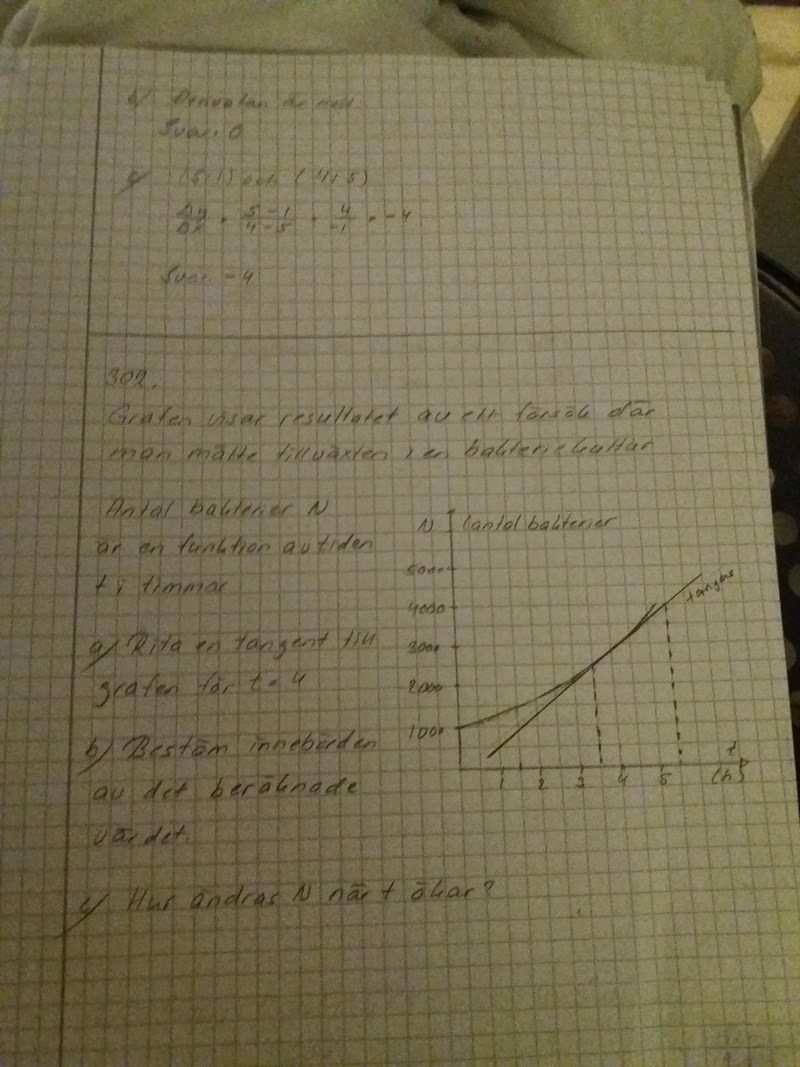 b) Derivatan är noll
Svar: 0
c) (5,1) och (4,5)
Δy/Δx = 5-1/4-5 = 4/-1 = -4
Svar: -4
302.
Grafen visar resultatet av ett försök där
man mätte tillväxten i en bakteriekultur
Antal bakterier N
är en funktion av tiden
t i timmar
a) Rita en tangent till
grafen för t = 4
b) Bestäm innebörden
av det beräknade
värdet.
c) Hur ändras N när t ökar?
N (antal bakterier
5000
4000
3000
2000
1000
tangent
1 2 3 4 5
t
(h)